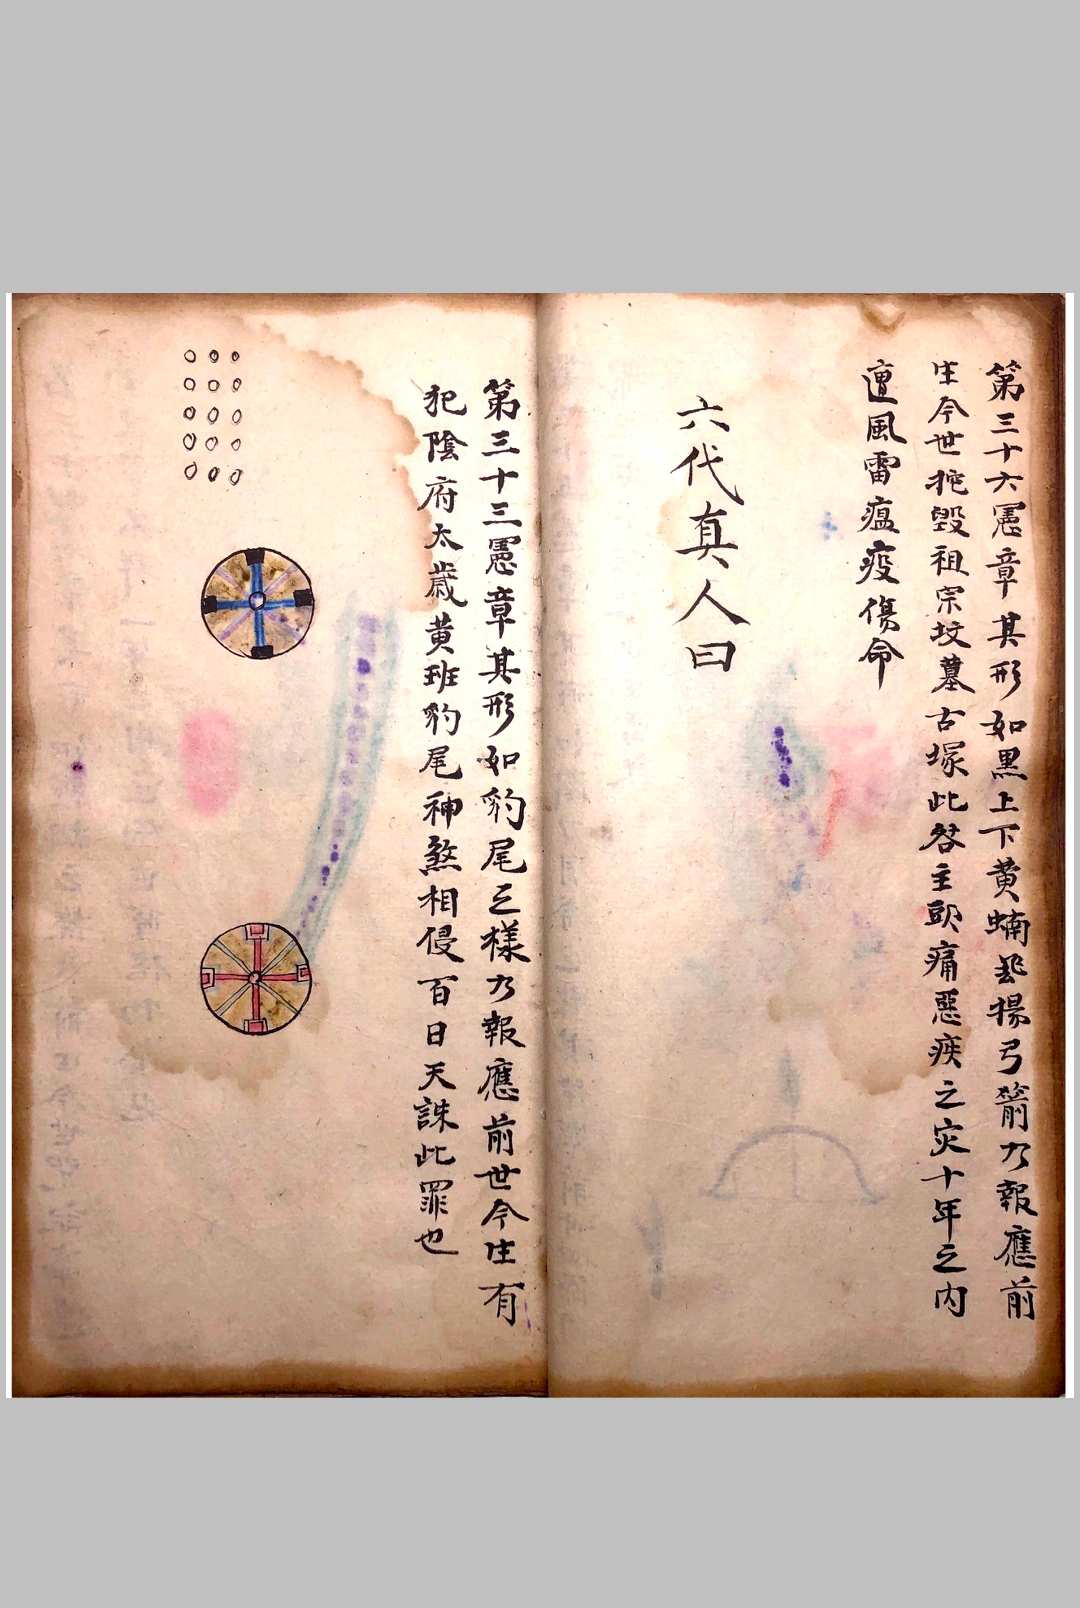 第三十六憲章其形如黑上下黃蛹飛揚弓箭乃報應前
生今世挖毀祖宗坟墓古塚此咎主頭痛惡疾之灾十年之內
遭風雷瘟疫傷命
六代真人曰
第三十三憲章其形如豹尾之樣乃報應前世今生有
犯陰府太歲黃班豹尾神煞相侵百日天誅此罪也